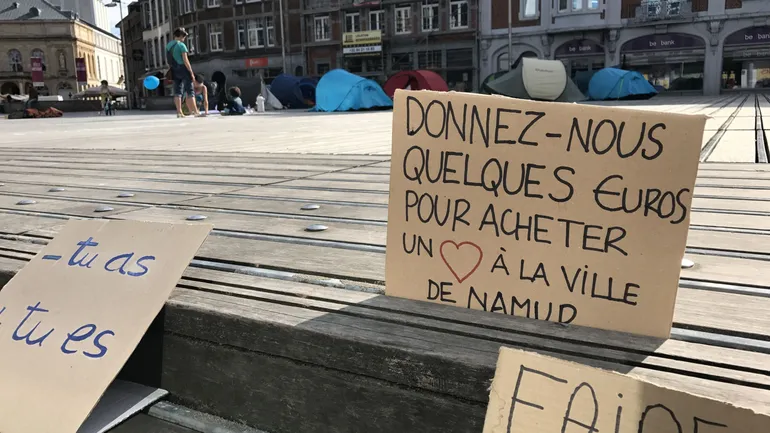 DONNEZ-NOUS
QUELQUES EUROS
POUR ACHETER
UN ♡ À LA VILLE
DE NAMUR
- tu as
tu es
FAIRE
be bank
be bank